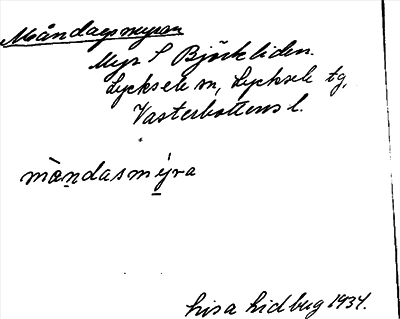 Måndagsmyran
Myr S Björkliden.
Lycksele sn, Lycksele tg,
Västerbottens l.
mòndasmýra
Lisa Lidberg 1934.